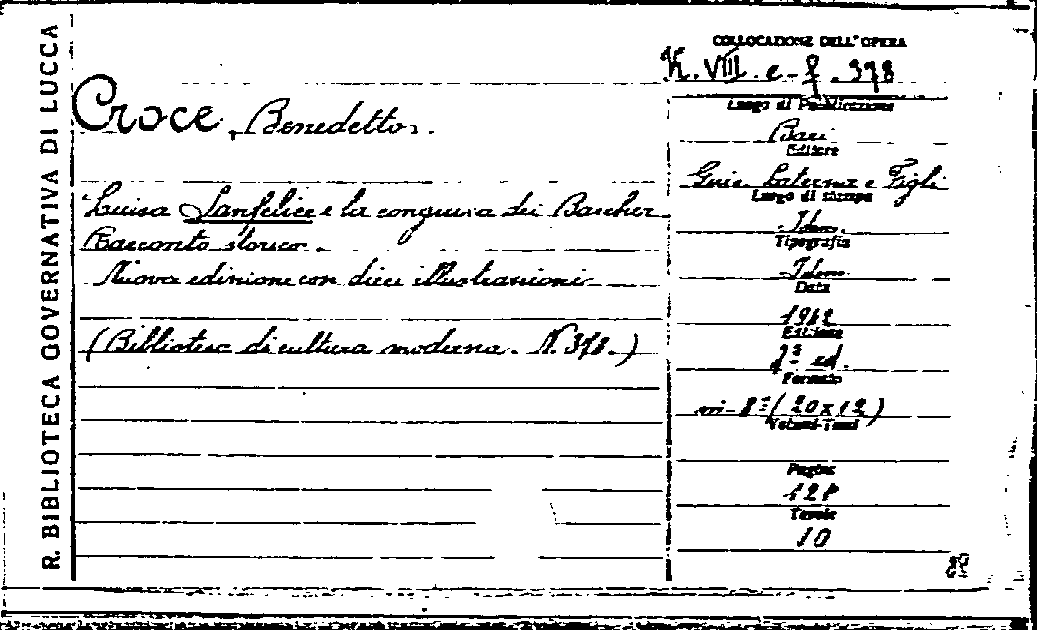 R. BIBLIOTECA GOVERNATIVA DI LUCCA
Croce, Benedetto.
Luisa Sanfelice e la congiura dei Baccher
Racconto storico.
Nuova edizione con dieci illustrazioni
(Biblioteca di cultura moderna. N. 378.)
COLLOCAZIONE DELL'OPERA
K. VIII. e - f. 378
Luogo di Pubblicazione
Bari
Editore
Gius. Laterza e Figli
Luogo di stampa
Idem.
Tipografia
Idem
Data
1942
Edizione
2ª ed.
Formato
in-8º (20x12)
Volumi-Tomi
Pagine
Tavole
10